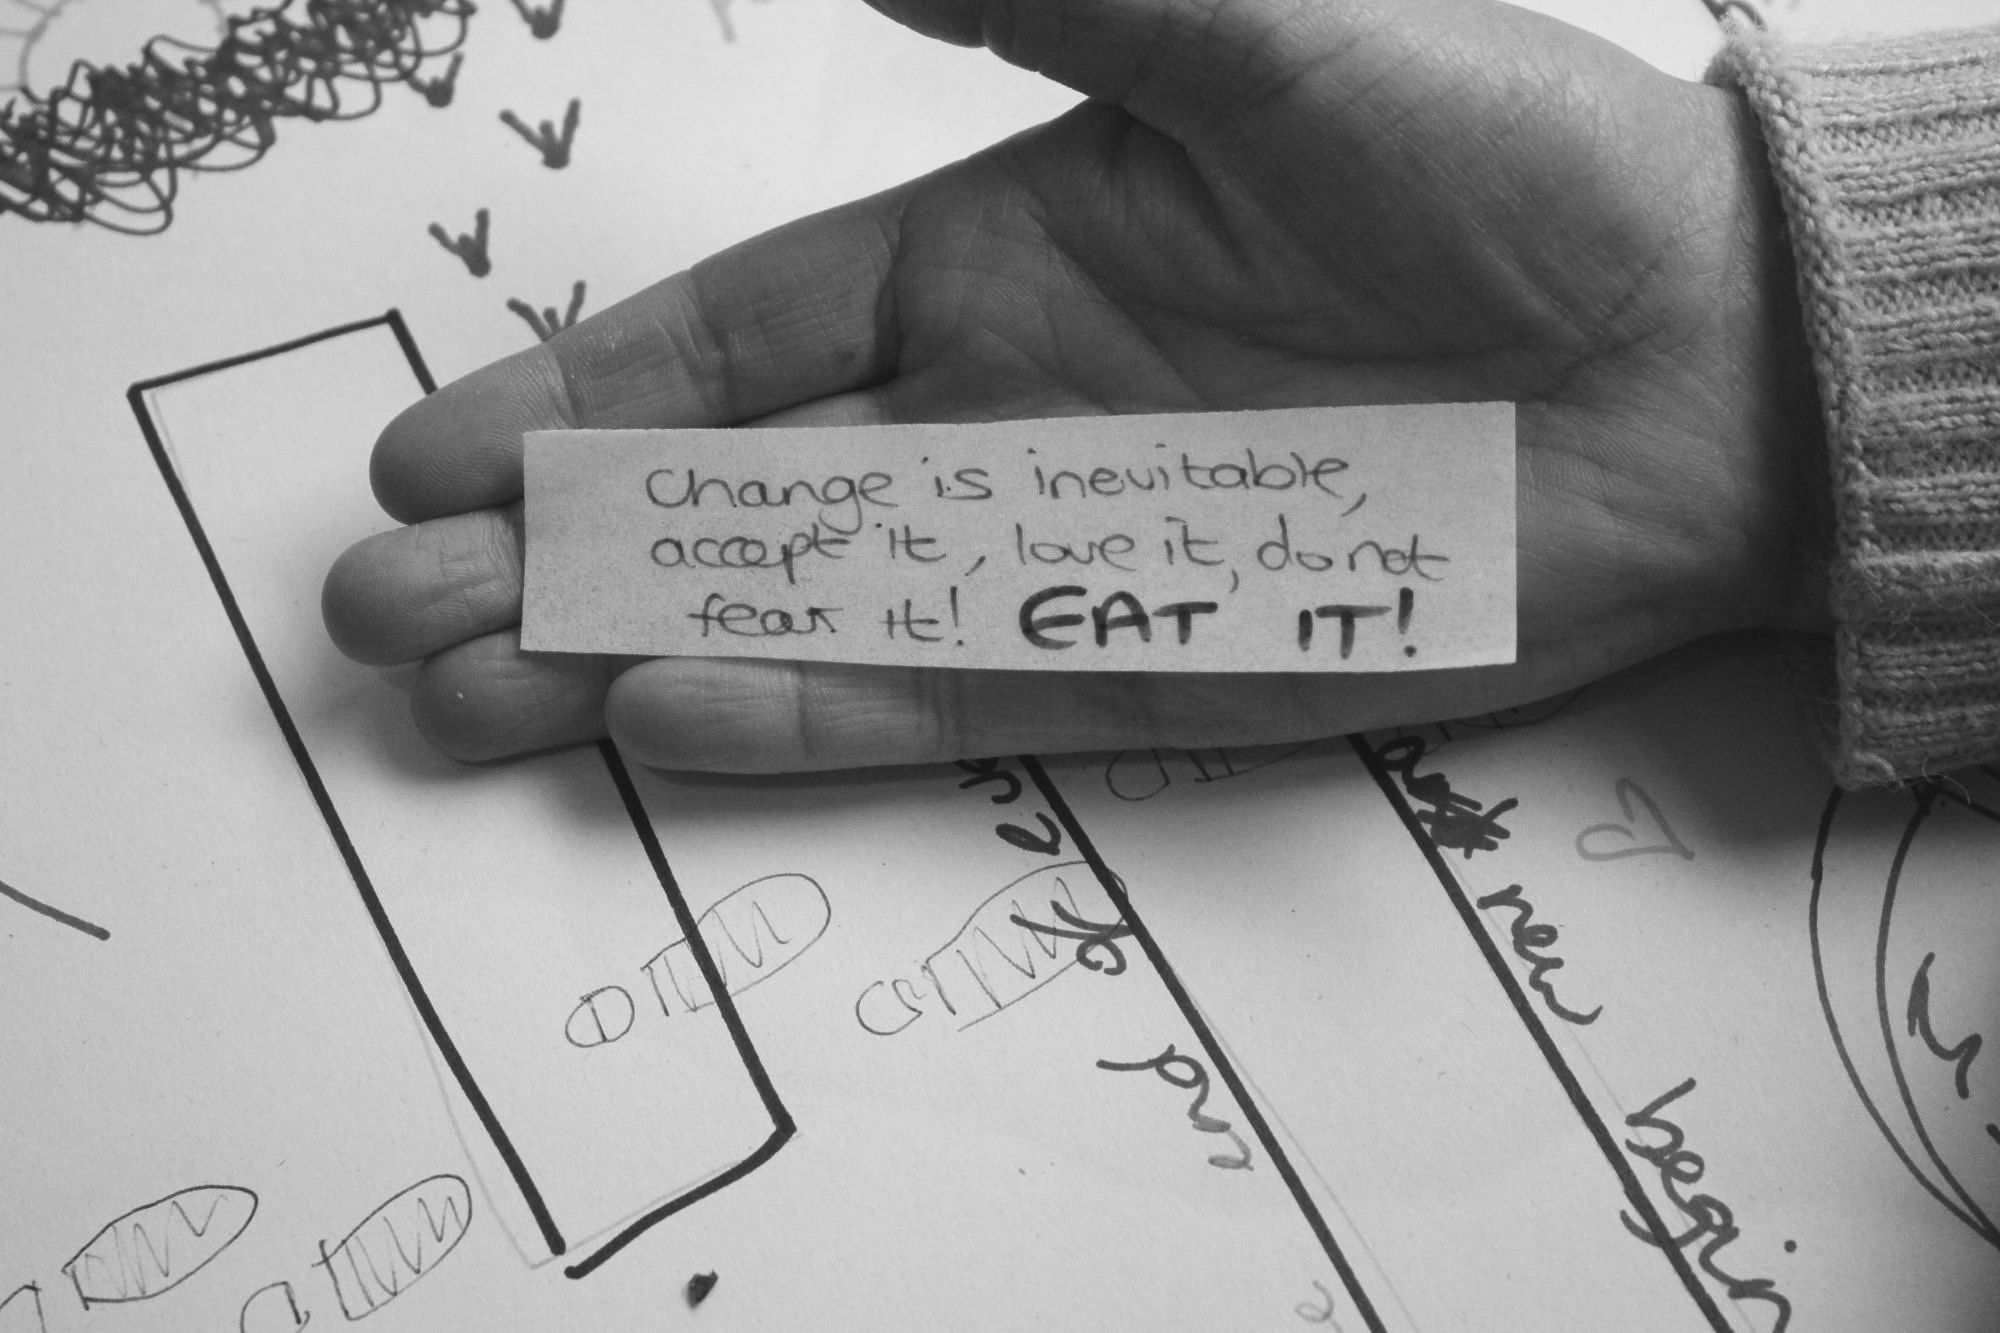 Change is inevitable,
accept it, love it, do not
fear it! EAT IT!
new begin